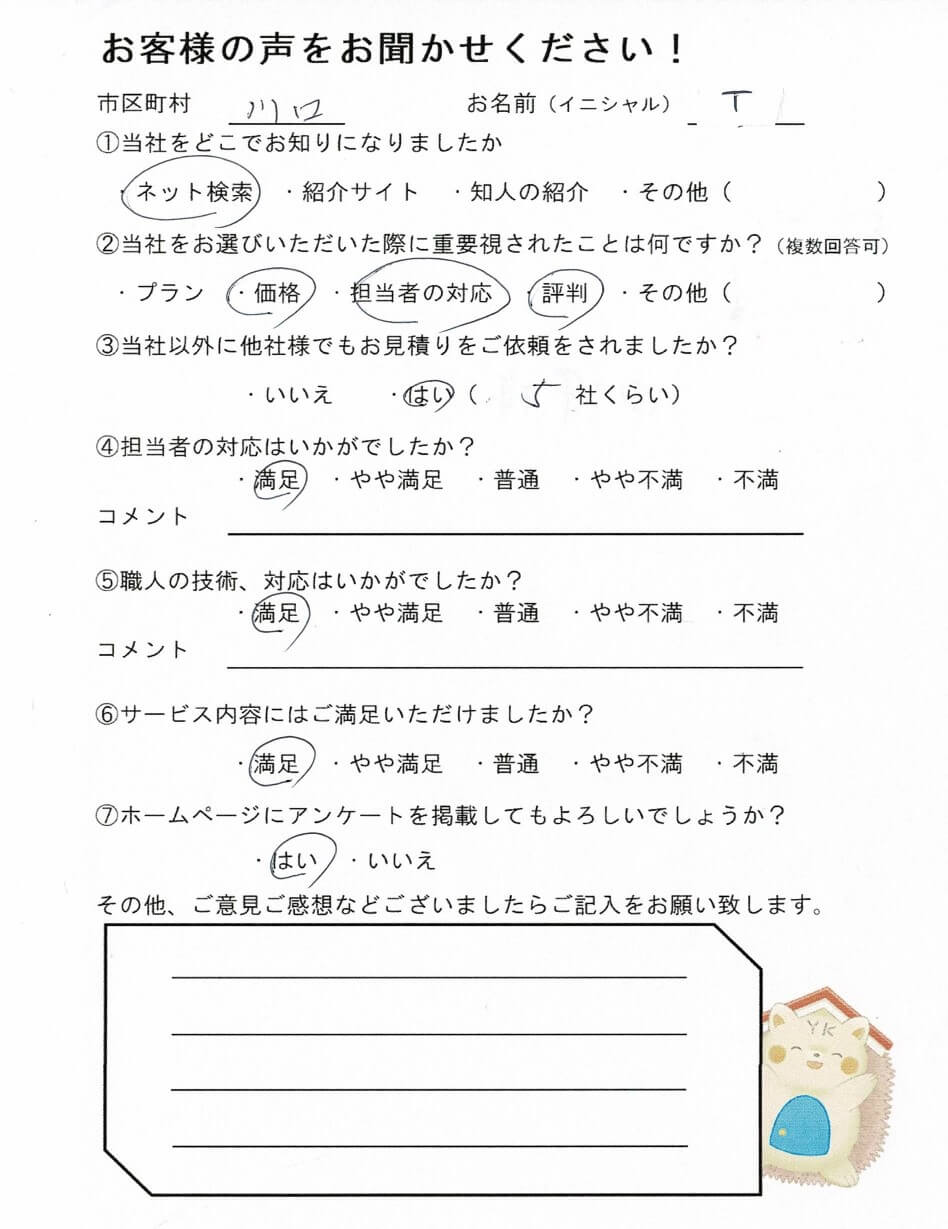 お客様の声をお聞かせください！
市区町村 川口 お名前（イニシャル） T
①当社をどこでお知りになりましたか
・ネット検索 ・紹介サイト ・知人の紹介 ・その他（ ）
②当社をお選びいただいた際に重要視されたことは何ですか？（複数回答可）
・プラン ・価格 ・担当者の対応 ・評判 ・その他（ ）
③当社以外に他社様でもお見積りをご依頼をされましたか？
・いいえ ・はい（ 5 社くらい）
④担当者の対応はいかがでしたか？
・満足 ・やや満足 ・普通 ・やや不満 ・不満
コメント
⑤職人の技術、対応はいかがでしたか？
・満足 ・やや満足 ・普通 ・やや不満 ・不満
コメント
⑥サービス内容にはご満足いただけましたか？
・満足 ・やや満足 ・普通 ・やや不満 ・不満
⑦ホームページにアンケートを掲載してもよろしいでしょうか？
・はい ・いいえ
その他、ご意見ご感想などございましたらご記入をお願い致します。
YK